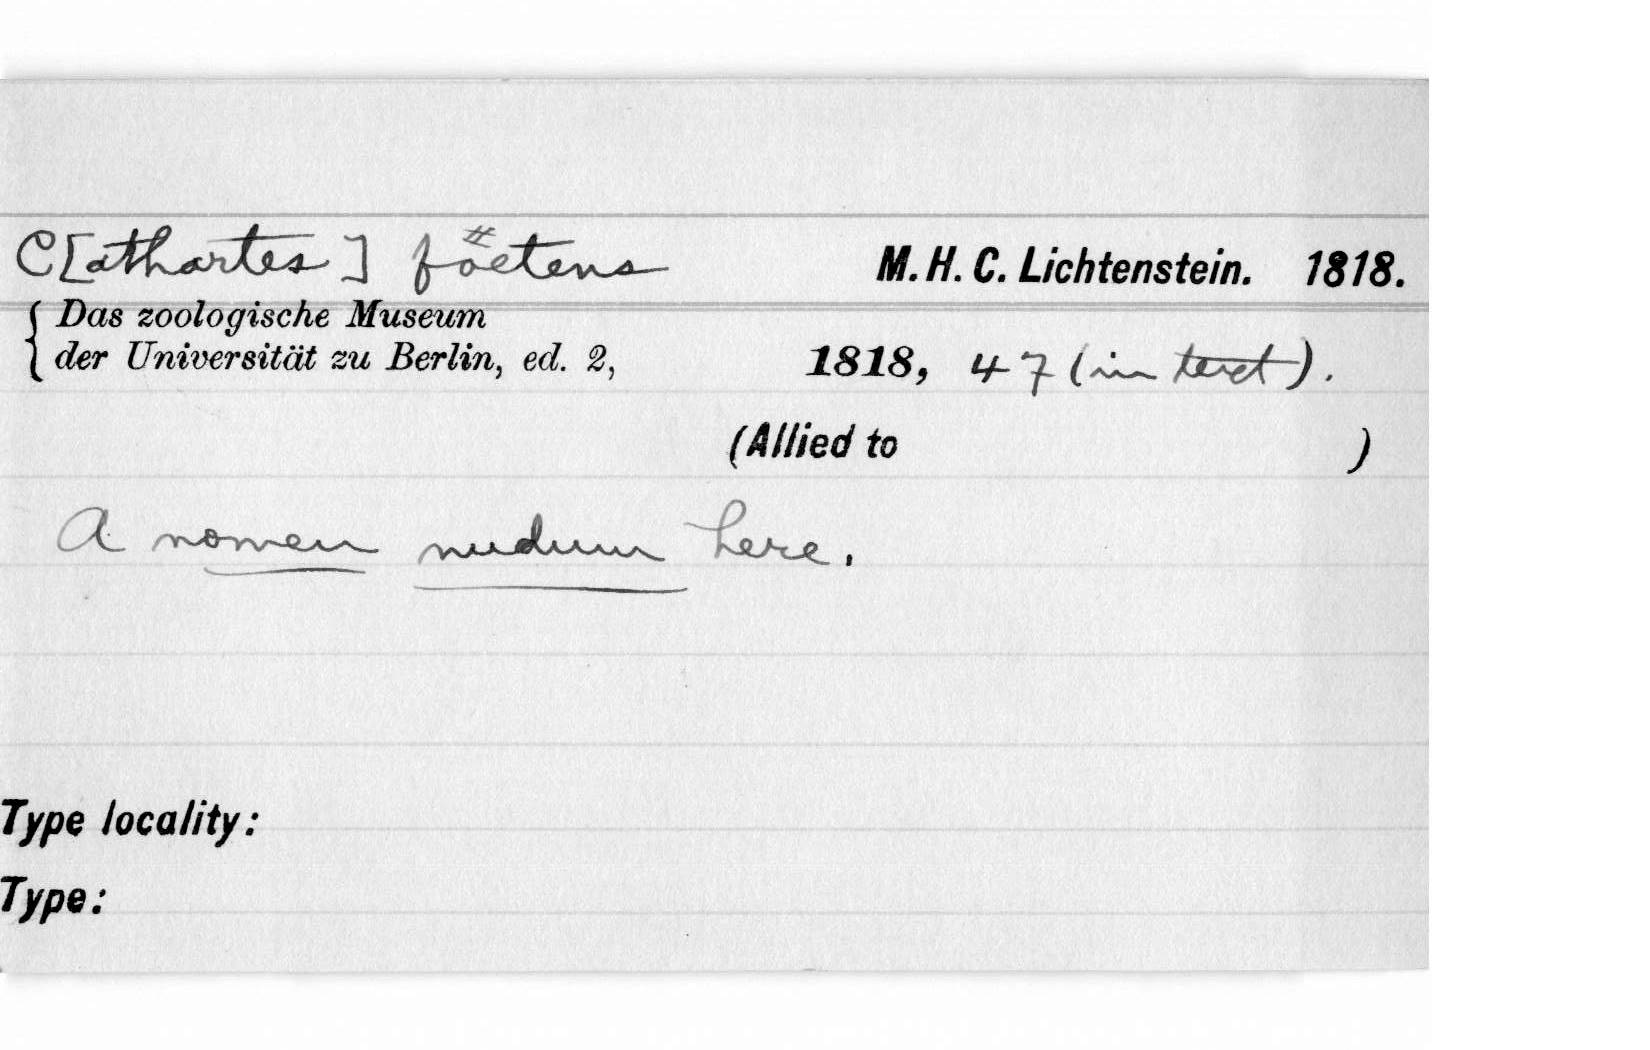 C[athartes] foetens M. H. C. Lichtenstein. 1818.
Das zoologische Museum
der Universität zu Berlin, ed. 2, 1818, 47 (in text).
(Allied to )
A nomen nudum here.
Type locality:
Type: